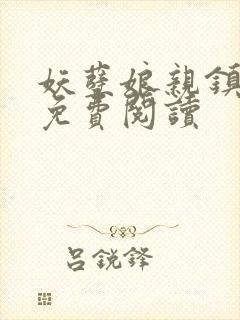 妖孽娘親鎮
免費閱讀
呂銳鋒